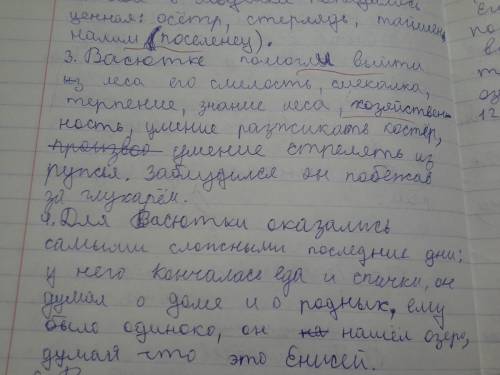 ценная: осётр, стерлядь, таймен,
налим (поселенец).
3. Васютке помогли выйти
из леса его смелость, смекалка,
терпение, знание леса, хозяйствен-
ность, умение разжикать костёр,
произвво умение стрелять из
ружья. Заблудился он побежав
за глухарём.
4. Для Васютки оказались
самыми сложными последние дни:
у него кончалась еда и спички, он
думал о доме и о родных, ему
было одиноко, он на нашёл озеро,
думая что это Енисей.
по
в
т
оз
12